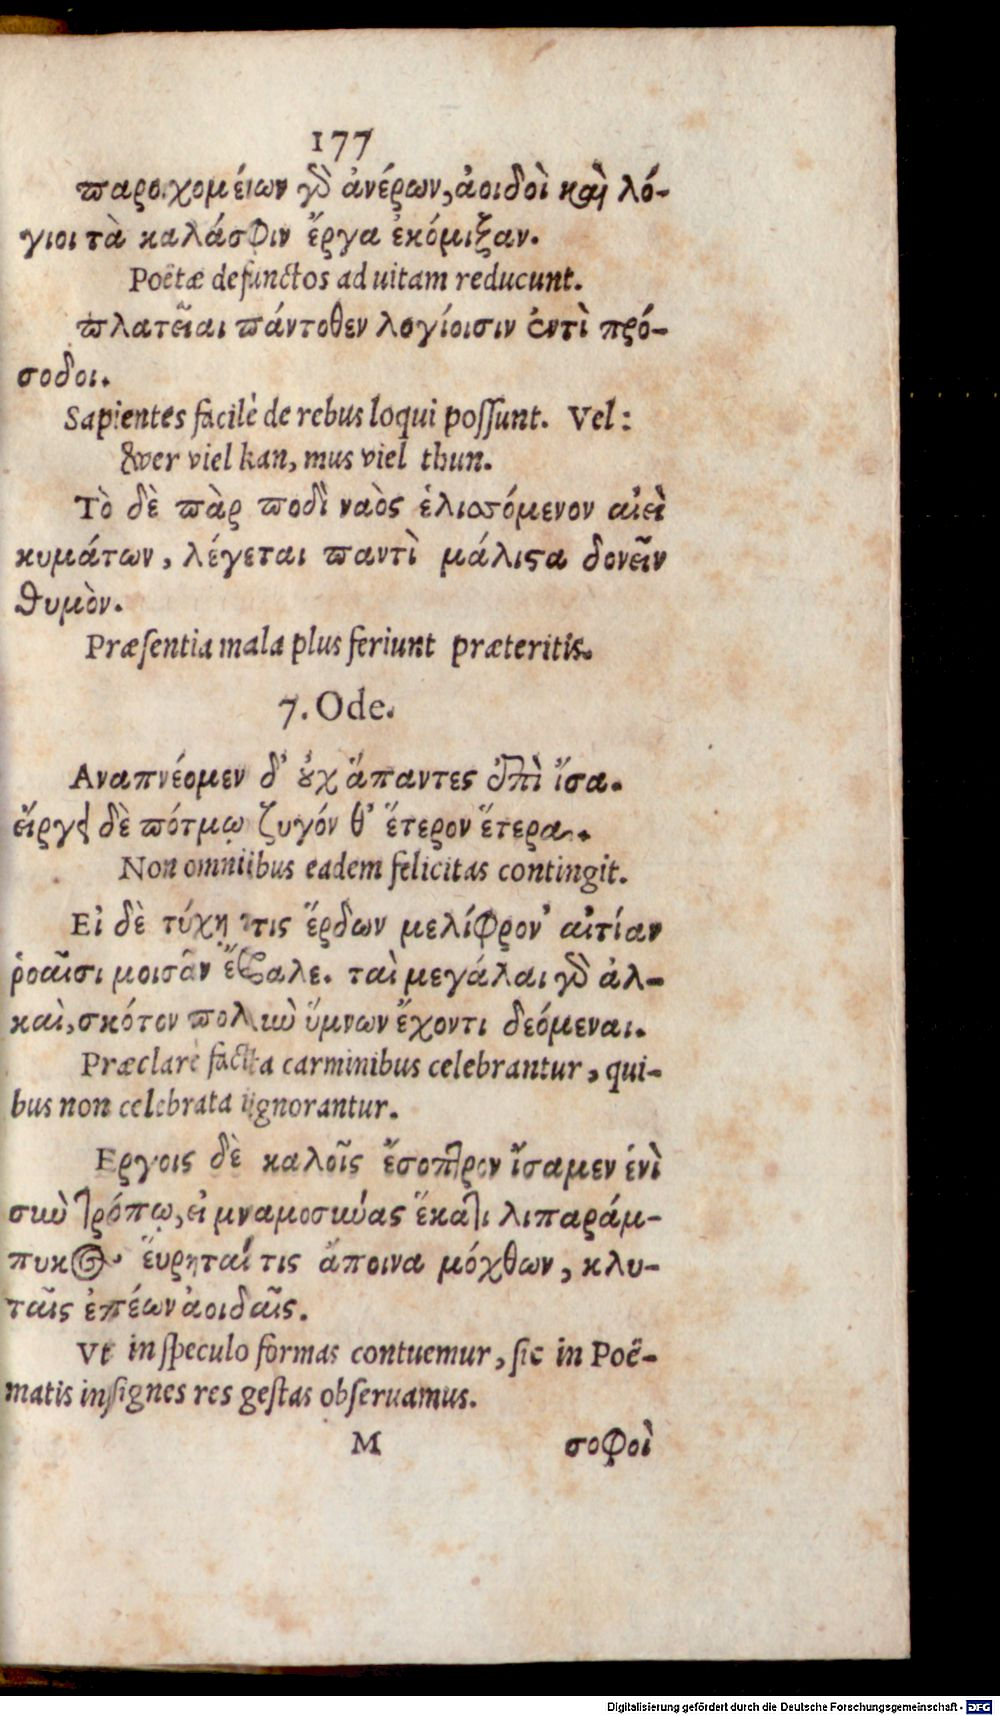 177
παροιχομένων γὰρ ἀνέρων, ἀοιδοὶ καὶ λό-
γιοι τὰ καλάσφιν ἔργα ἐκόμιξαν.
Poëtæ defunctos ad uitam reducunt.
πλατεῖαι πάντοθεν λογίοισιν ἐντὶ πρό-
σοδοι.
Sapientes facilè de rebus loqui possunt. Vel:
Wer viel kan, mus viel thun.
Τὸ δὲ πὰρ ποδὶ ναὸς ἑλισσόμενον αἰεὶ
κυμάτων, λέγεται παντὶ μάλιςα δονεῖν
θυμὸν.
Præsentia mala plus feriunt præteritis.
7. Ode.
Αναπνέομεν δ' οὐχ ἅπαντες ἐπὶ ἴσα.
εἴργει δὲ πότμῳ ζυγόν θ' ἕτερον ἕτερα.
Non omniibus eadem felicitas contingit.
Εἰ δὲ τύχῃ τις ἔρδων μελίφρον' αἰτίαν
ῥοαῖσι μοισᾶν ἔβαλε. ταὶ μεγάλαι γὰρ ἀλ-
καὶ, σκότον πολιὼ ὕμνων ἔχοντι δεόμεναι.
Præclarè facta carminibus celebrantur, qui-
bus non celebrata ignorantur.
Εργοις δὲ καλοῖς ἔσοπτρον ἴσαμεν ἑνὶ
σὺν τρόπῳ, εἰ μναμοσύνας ἕκατι λιπαράμ-
πυκος εὕρηταί τις ἄποινα μόχθων, κλυ-
ταῖς ἐπέων ἀοιδαῖς.
Vt in speculo formas contuemur, sic in Poë-
matis insignes res gestas obseruamus.
M σοφοὶ
Digitalisierung gefördert durch die Deutsche Forschungsgemeinschaft - DFG